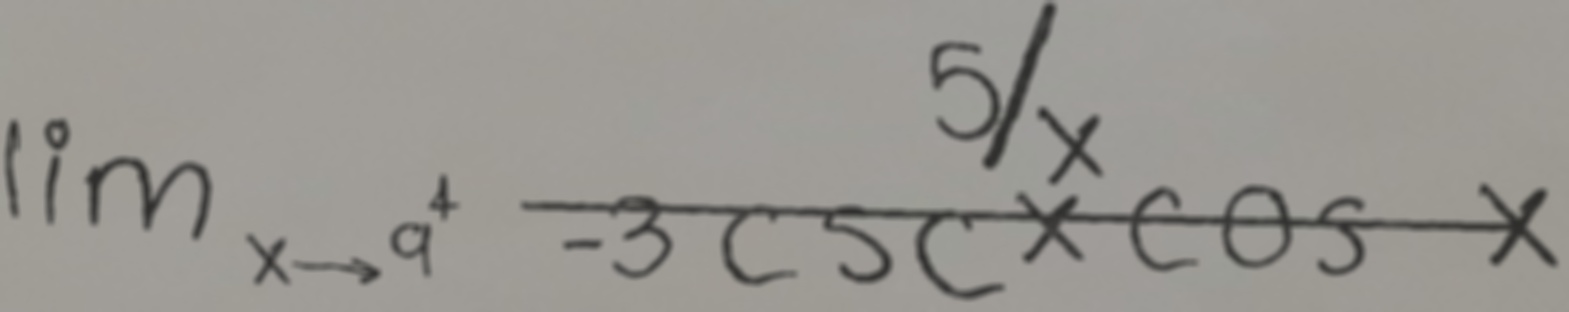 lim x→a⁺ 5/x / -3 csc x cos x